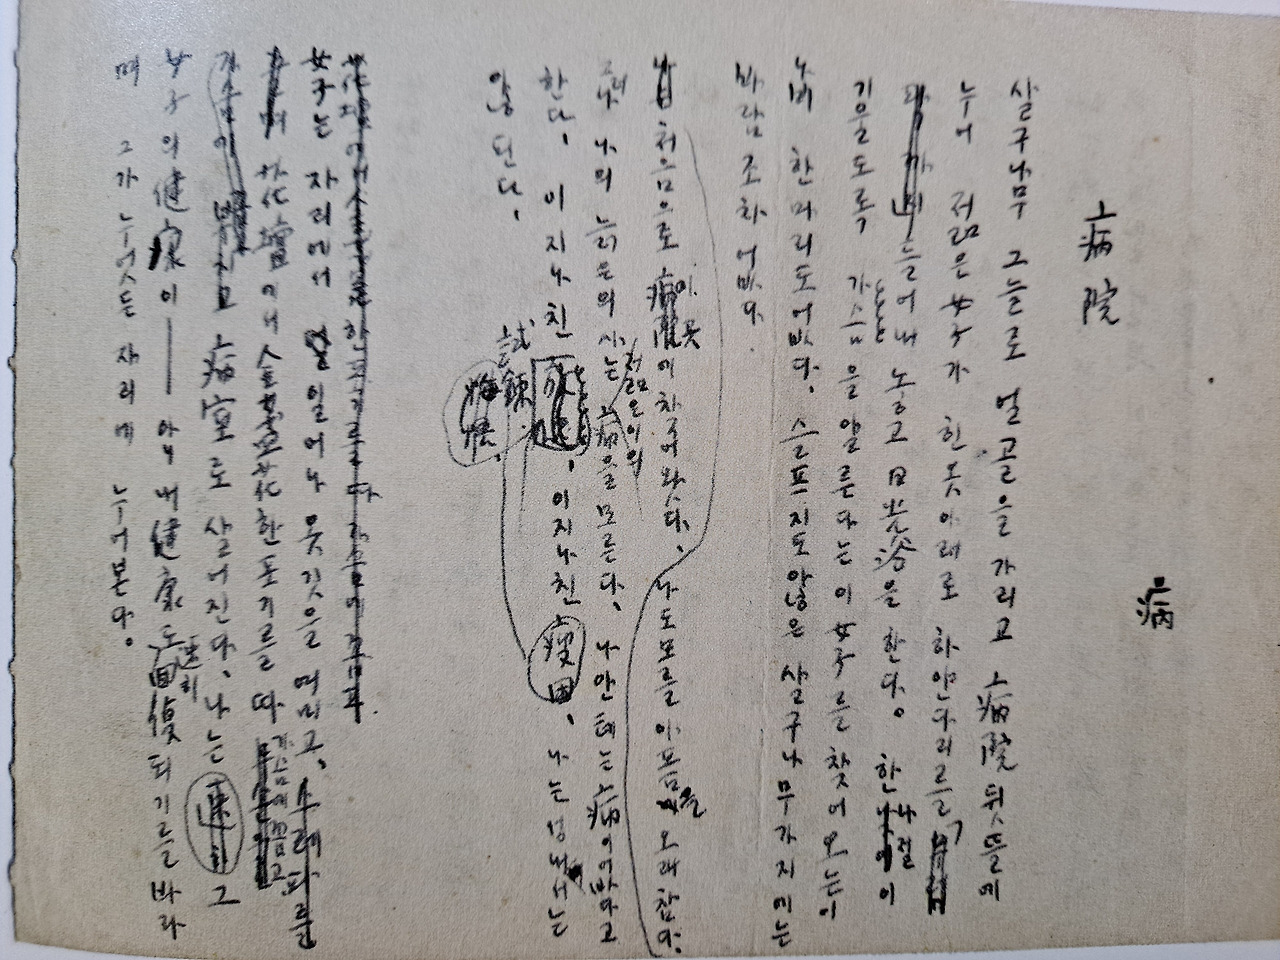 病
病院
살구나무 그늘로 얼골을 가리고 病院뒷뜰에
누어 젊은 女子가 힌옷아래로 하얀다리를
들어내 놓고 日光浴을 한다。 한나절이
기울도록 가슴을 알른다는 이 女子를 찾어 오는이
나비 한마리도 없다. 슬프지도 않은 살구나무가지에는
바람조차 없다.
처음으로 이곳에 찾어왔다. 나도모를 아픔을 오래참다.
그러나 나의 늙은의사는 젊은이의 病을 모른다. 나안테는 病이 없다고
한다. 이지나친 試鍊, 이지나친 疲困. 나는 성내서는
않된다.
女子는 자리에서 일어나 옷깃을 여미고,
花壇에서 金盞花 한포기를 따 가슴에꼽고
病室로 살어진다. 나는 그
女子의 健康이 ── 아니 내 健康도 速히 回復되기를 바라
며 그가 누엇든 자리에 누어본다。